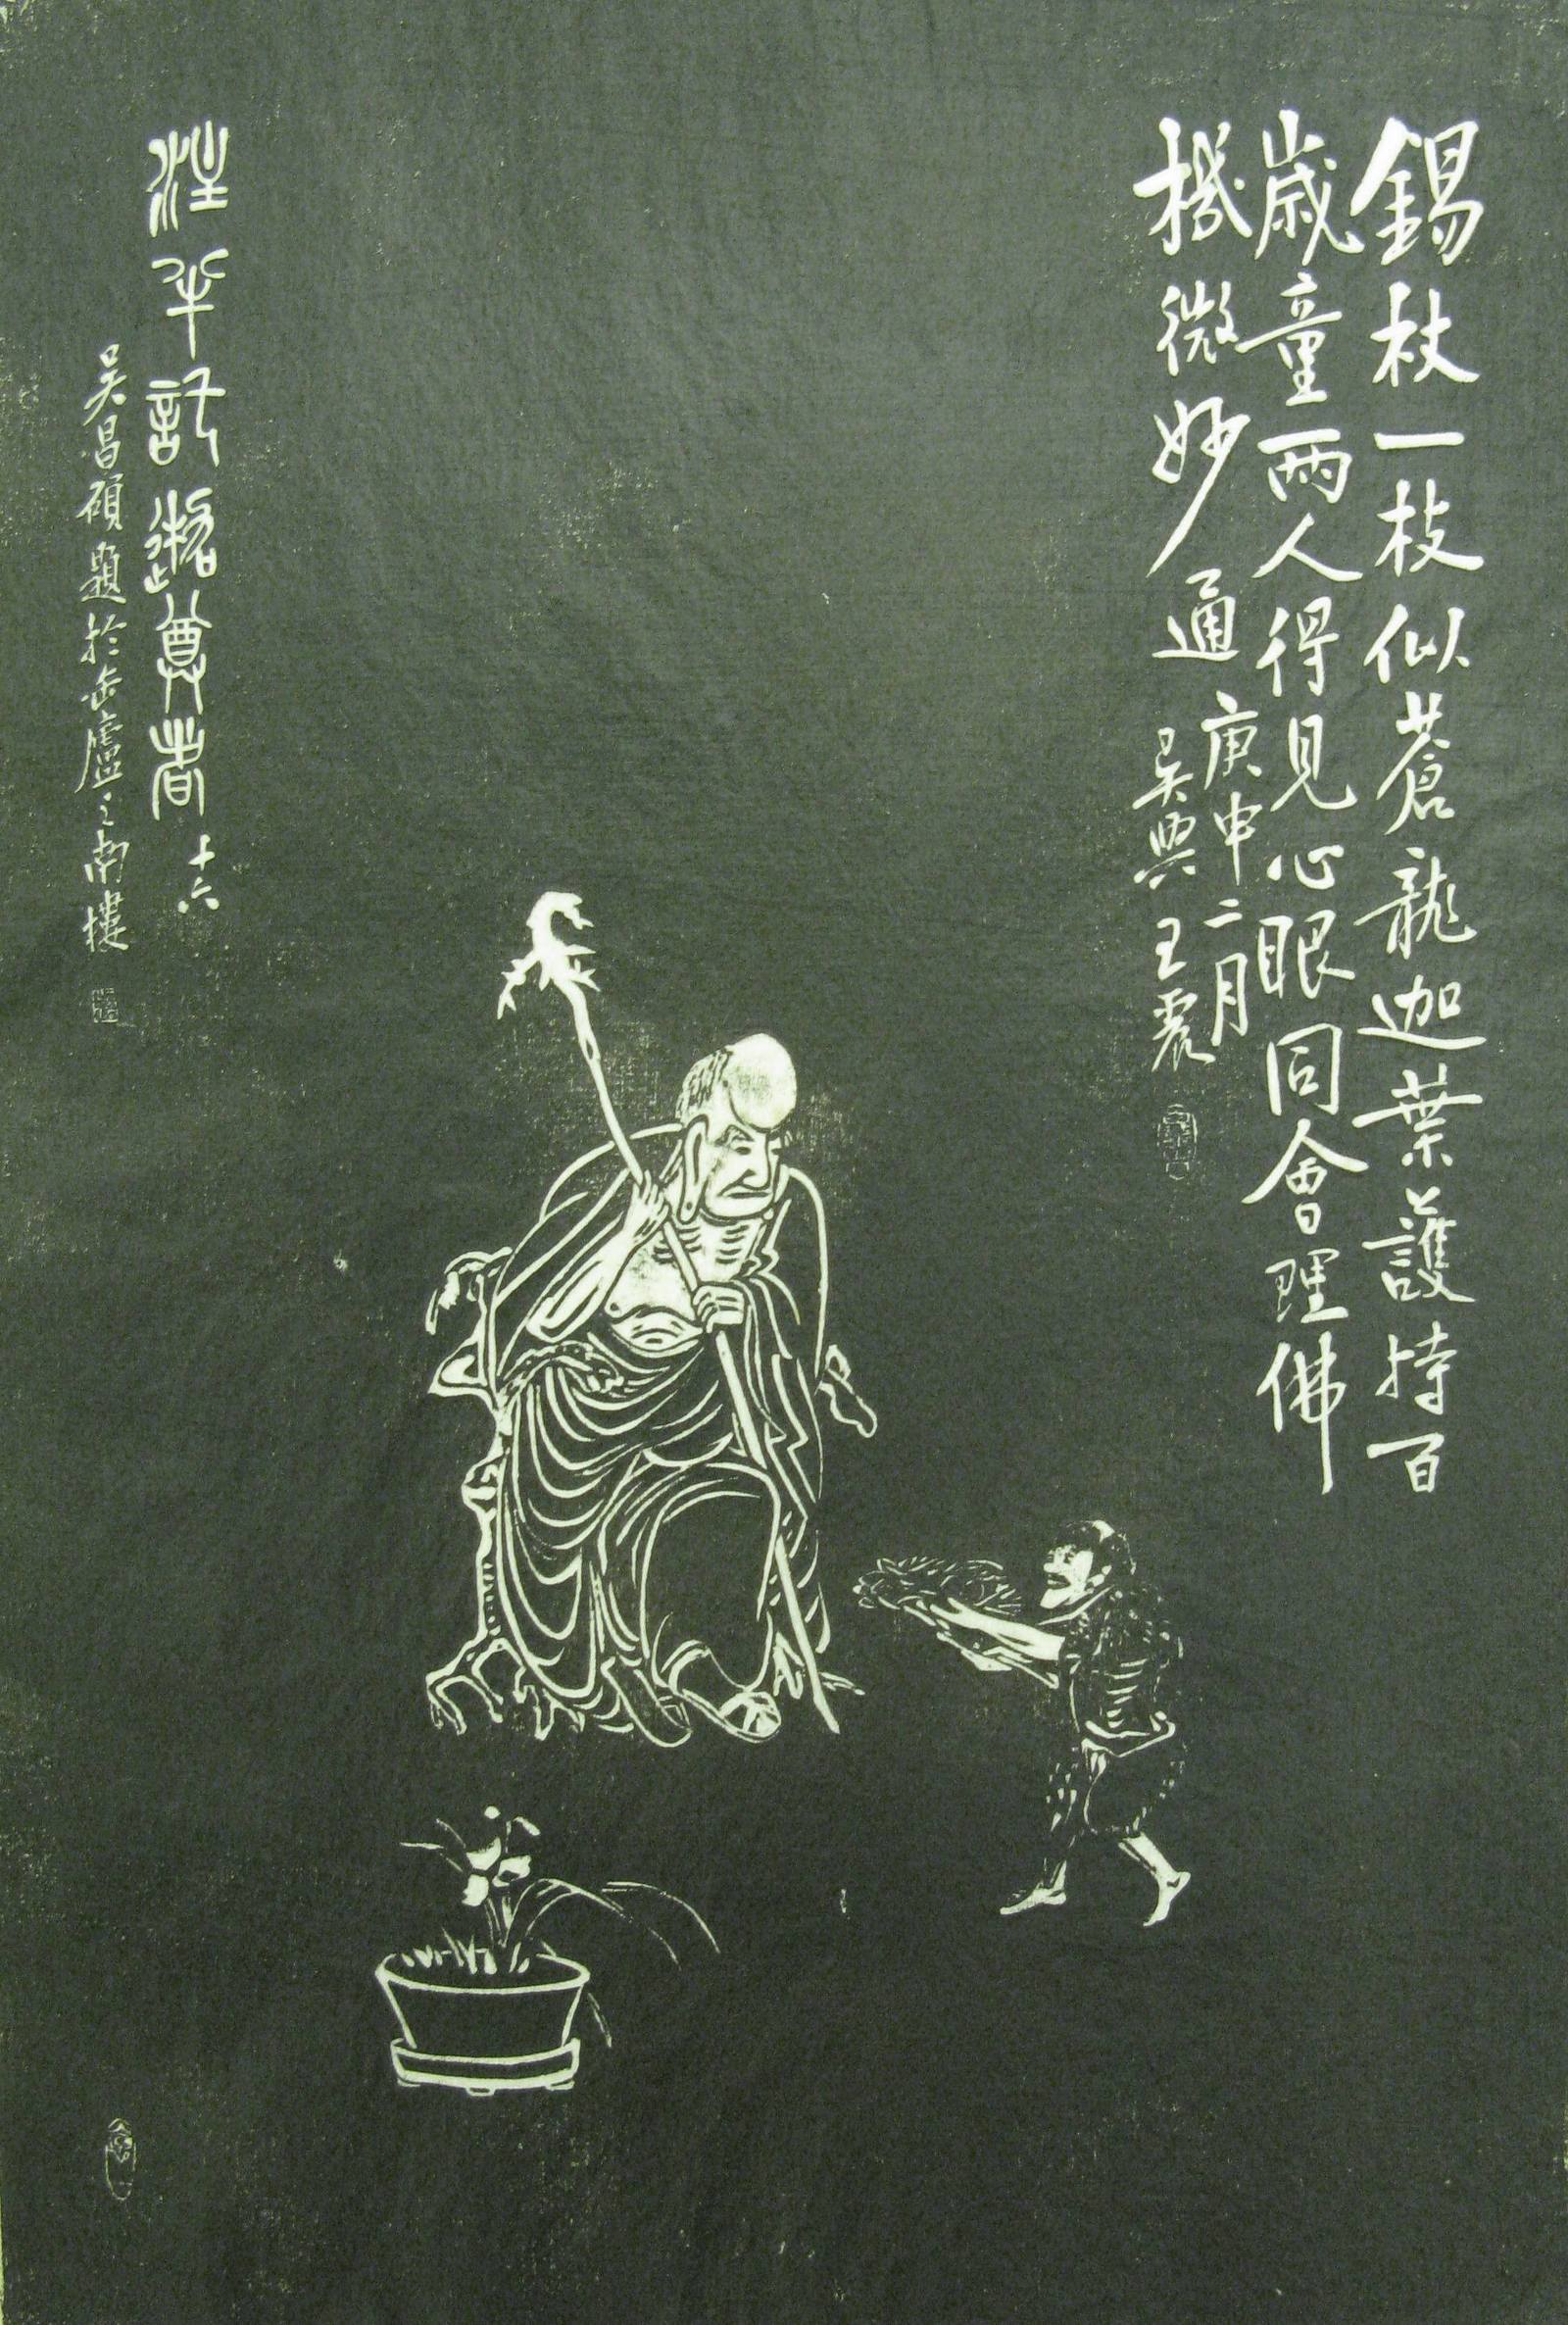 錫杖一枝似蒼龍迦葉護持百
歲童兩人得見心眼同會理佛
機微妙通
庚申二月
吳興王震
注半託迦尊者 十六
吳昌碩題於缶廬之南樓